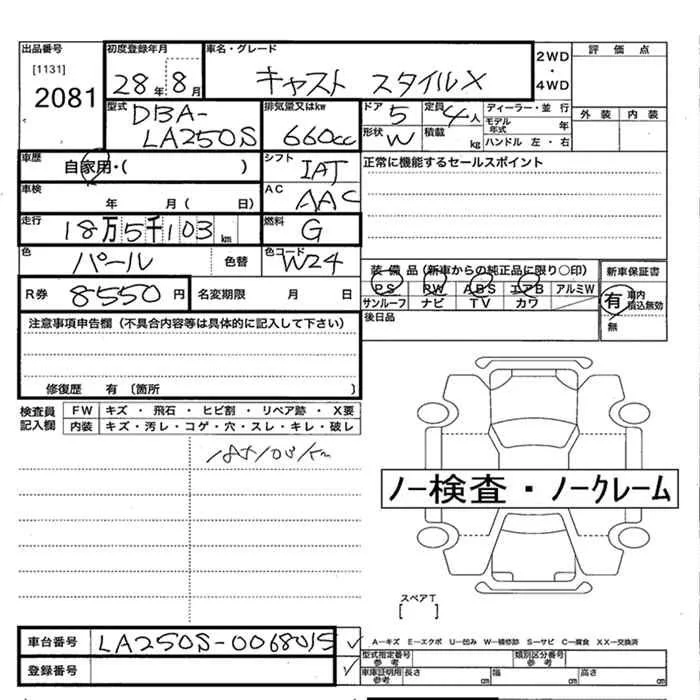 出品番号
[1131]
2081
初度登録年月
28年8月
車名・グレード
キャスト スタイルX
2WD
・
4WD
評価点
外装 内装
型式
DBA-
LA250S
排気量又はkw
660cc
ドア 5
定員 4人
形状 W
積載 kg
ディーラー・並行
モデル年式 年
ハンドル 左・右
車歴
自家用・( )
シフト
IAT
正常に機能するセールスポイント
車検
年 月( 日)
AC
AAC
走行
18万5千103km
燃料
G
色
パール
色替
色コード
W24
装備品(新車からの純正品に限り○印)
PS RW ABS エアB アルミW
サンルーフ ナビ TV カワ
新車保証書
有 車内積込無効
無
R券 8550円
名変期限 月 日
後日品
注意事項申告欄(不具合内容等は具体的に記入して下さい)
修復歴 有〔箇所 〕
検査員
記入欄
FW キズ・飛石・ヒビ割・リペア跡・X要
内装 キズ・汚レ・コゲ・穴・スレ・キレ・破レ
ノー検査・ノークレーム
スペアT
[ ]
車台番号 LA250S-0068015
登録番号
A-キズ E-エクボ U-凹み W-補修跡 S-サビ C-腐食 XX-交換済
型式指定番号
参考
類別区分番号
参考
車庫証明用
参考
長さ cm 幅 cm 高さ cm